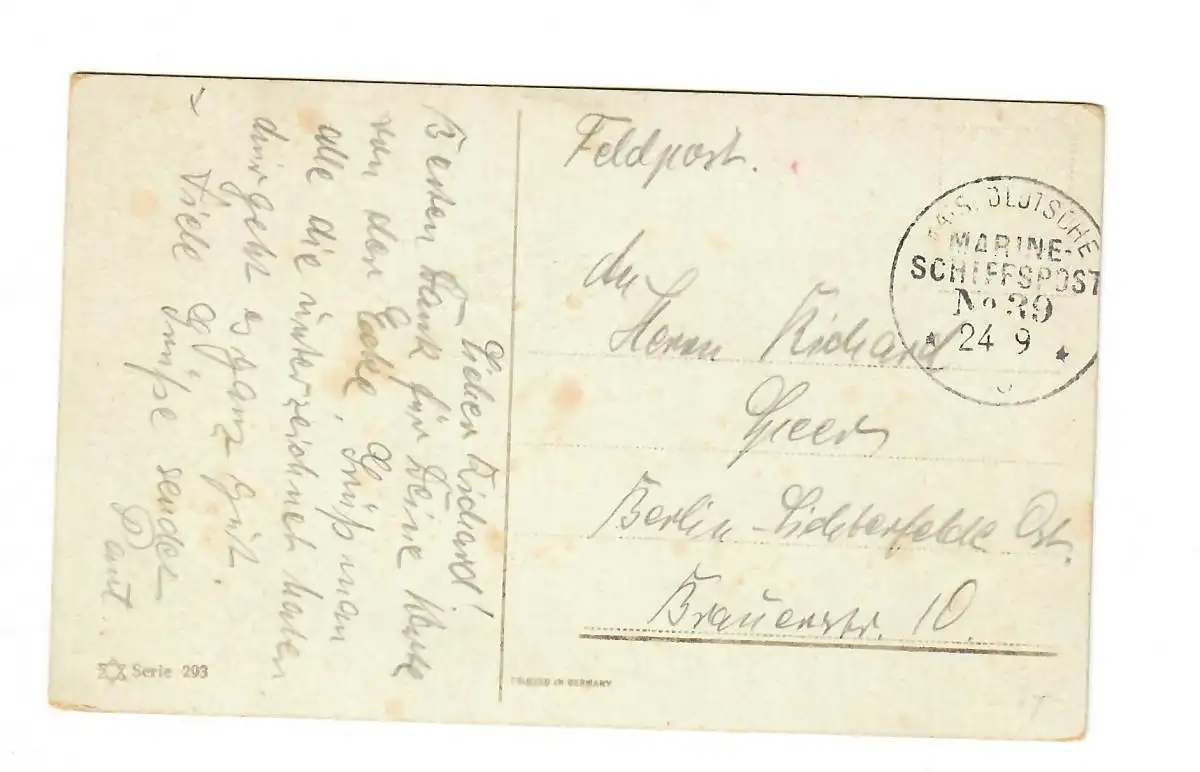 Lieber Richard!
Besten Dank für Deine Karte
von der Ecke, Grüß man
alle die unterzeichnet haben
geht es ganz gut.
Viele Grüße sendet
Feldpost.
An
Herrn Richard
Berlin-Lichterfelde Ost.
Brauerstr. 10.
KAIS. DEUTSCHE
MARINE-
SCHIFFSPOST
No 39
* 24 9 *
Serie 293
PRINTED IN GERMANY